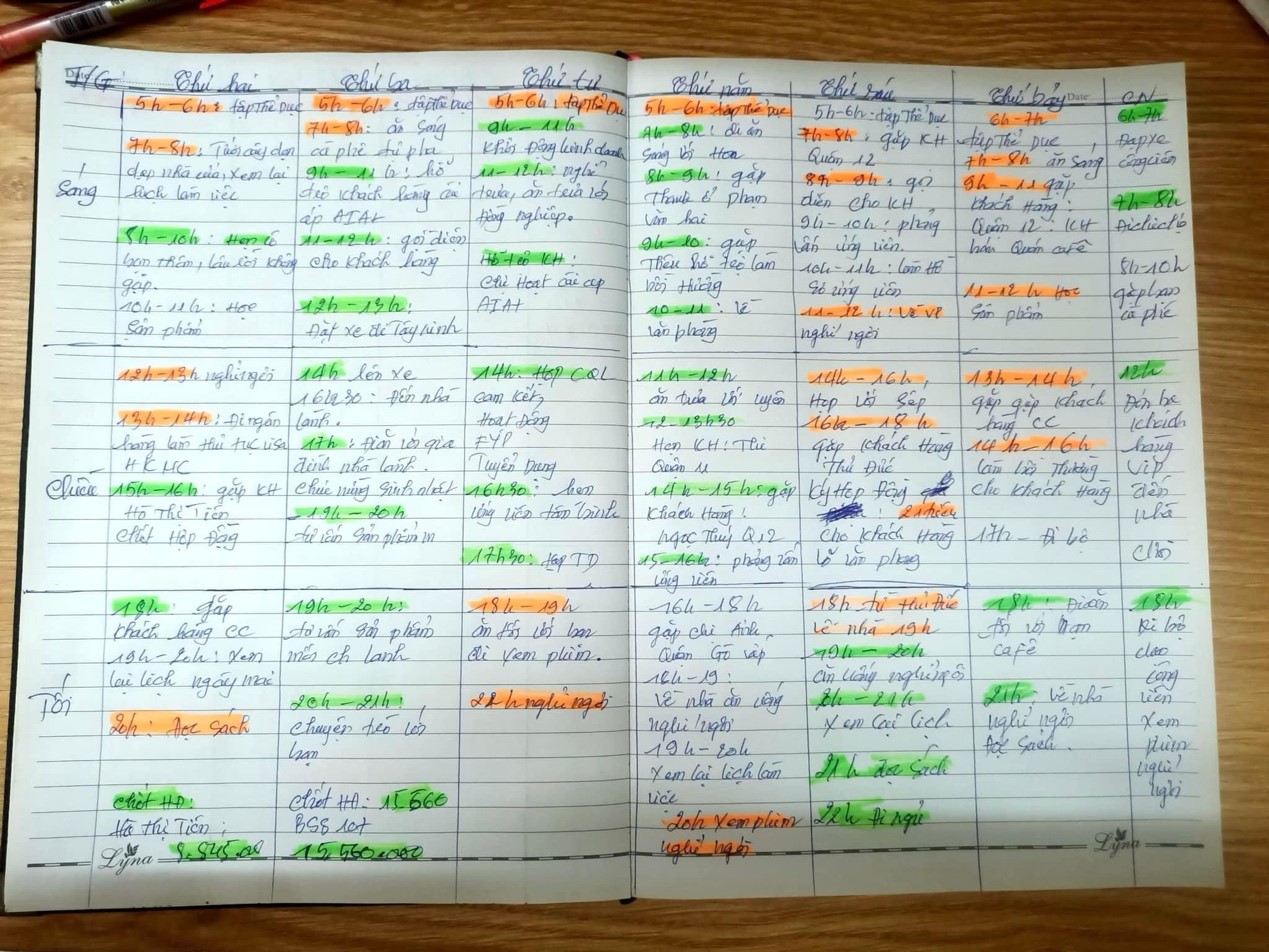 T/G
Thứ hai
Thứ ba
Thứ tư
Thứ năm
Thứ sáu
Thứ bảy
CN
Date
Sáng
5h-6h: tập Thể Dục
7h-8h: Tưới cây dọn
dẹp nhà cửa, xem lại
lịch làm việc
8h-10h: Hẹn cô
bạn thêm, lâu rồi không
gặp.
10h-11h: Học
Sản phẩm
5h-6h: tập Thể Dục
7h-8h: ăn sáng
cà phê
9h-11h: hỗ
trợ khách hàng cài
áp AIA+
11-12h: gọi điện
cho khách hàng
12h-13h:
Đặt xe đi Tây Ninh
5h-6h: tập Thể Dục
9h-11h
Khởi Động kinh doanh
11-12h: nghỉ
trưa, ăn trưa với
Đồng nghiệp.
Hỗ trợ KH:
Chị Hoạt cài app
AIA+
5h-6h: tập Thể Dục
7h-8h: đi ăn
Sáng với
8h-9h: gặp
Thanh ở Phạm
Văn Hai
9h-10: gặp
Thêu hỗ trợ làm
bồi thường
10-11: Về
văn phòng
5h-6h: tập Thể Dục
7h-8h: gặp KH
Quận 12
8h-9h: gọi
điện cho KH
9h-10h: phỏng
vấn ứng viên.
10h-11h: làm Hồ
Sơ ứng viên
11-12h: Về
nghỉ ngơi
6h-7h
tập Thể Dục
7h-8h ăn sáng
9h-11 gặp
Khách Hàng:
Quận 12: KH
bán Quán cafê
11-12h Học
Sản phẩm
6h-7h
Đạp xe
công viên
7h-8h
Đi chợ
8h-10h
gặp bạn
cà phê
Chiều
12h-13h nghỉ ngơi
13h-14h: Đi ngân
hàng làm thủ tục visa
15h-16h: gặp KH
Hà Thị Tiến
Chốt Hợp Đồng
14h lên xe
16h30: Đến nhà
lanh.
17h: Đến với gia
đình nhà lanh.
chúc mừng Sinh nhật
19h-20h
tư vấn Sản phẩm m
14h: Họp CQL
cam kết,
Hoạt Động
FYP
Tuyển Dụng
16h30: hẹn
ứng viên tân bình
17h30: họp TD
11h-12h
ăn trưa với uyên
12-13h30
Hẹn KH: Thi
Quận 11
14h-15h: gặp
Khách Hàng:
Ngọc Thuý Q12
15-16h: phỏng vấn
ứng viên
14h-16h,
Họp với Sếp
16h-18h
gặp khách Hàng
Thủ Đức
Ký Hợp Đồng
21 triệu
cho khách Hàng
ở văn phòng
13h-14h,
gặp khách
hàng CC
14h-16h
làm bồi Thường
cho khách Hàng
17h - Đi bộ
12h
Khách
hàng
Víp
đến
nhà
chơi
Tối
18h: gặp
khách hàng CC
19h-20h: Xem
lại lịch ngày mai
20h: Đọc sách
Chốt HĐ:
Hà Thị Tiến:
8.845.00
19h-20h:
tư vấn Sản phẩm
mới ch lanh
20h-21h:
chuyện trò với
bạn
Chốt HĐ: 15.560
15.560.000
18h-19h
ăn tối với bạn
đi xem phim.
22h nghỉ ngơi
16h-18h
gặp chị Ánh,
Quận Gò vấp
18h-19:
Về nhà ăn uống
nghỉ ngơi
19h-20h
xem lại lịch làm
việc
20h Xem phim
nghỉ ngơi
18h từ Thủ Đức
về nhà 19h
19h-20h
ăn uống nghỉ ngơi
20h-21h
Xem lại lịch
21h đọc sách
22h Đi ngủ
18h: Đi ăn
tối với bạn
café
21h: Về nhà
nghỉ ngơi
đọc sách.
18h
Đi bộ
dạo
công
viên
xem
phim
nghỉ
ngơi
Lyna
Lyna